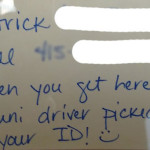 trick
ll 415-
en you get here
uni driver picked
your ID! :)